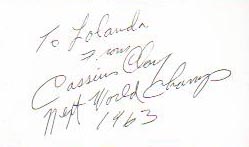 To Lolanda
From
Cassius Clay
Next World Champ
1963